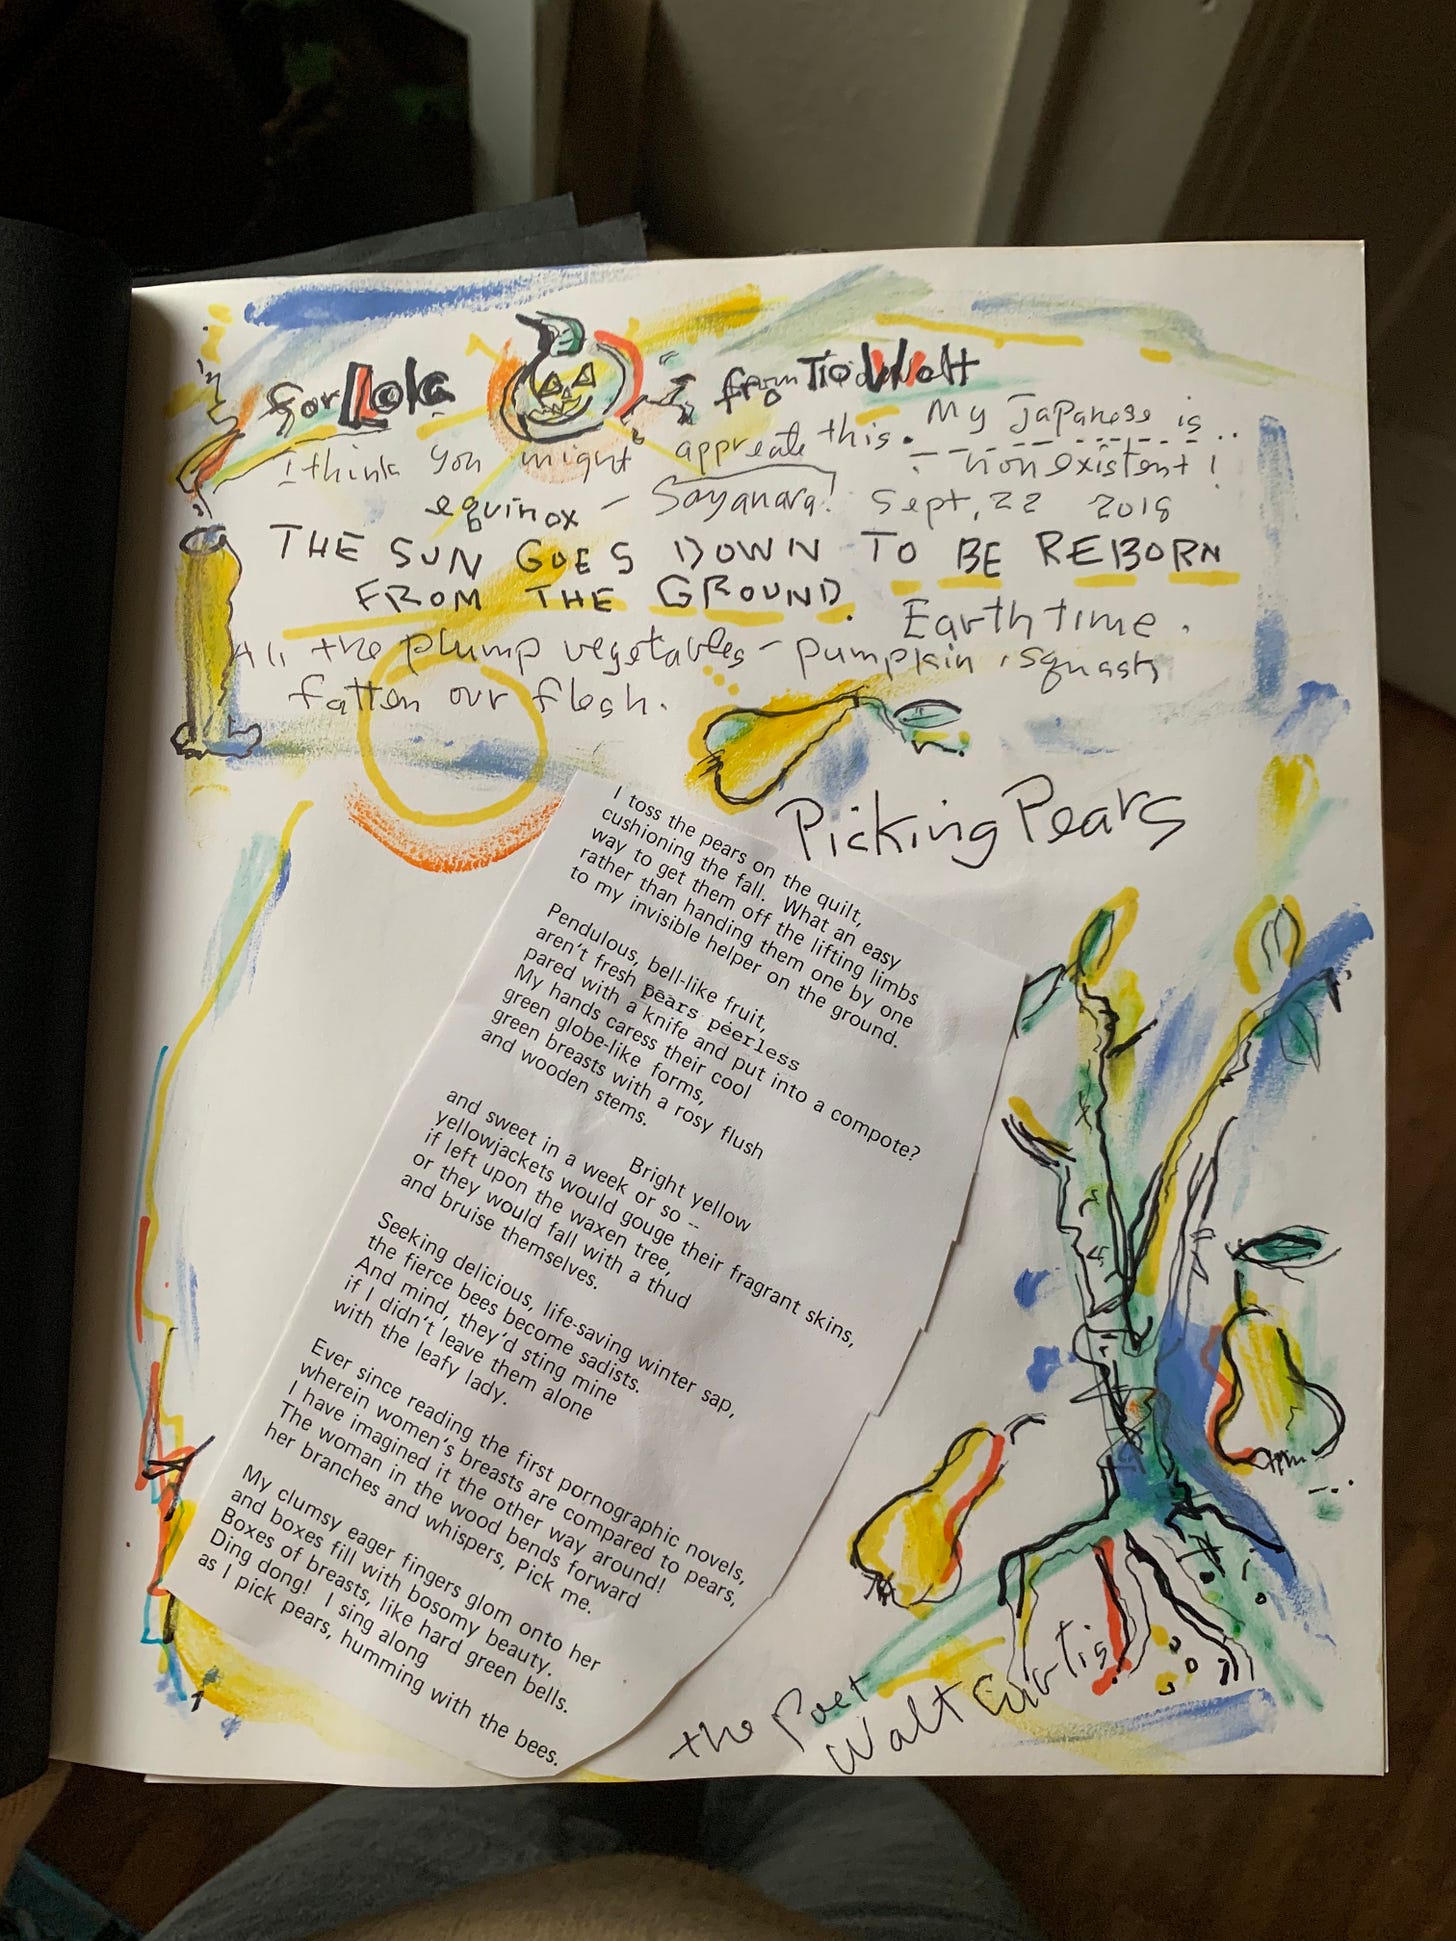 for Lola from Tio Walt
I think you might appreate this. My Japanese is
nonexistent!
equinox - Sayanara! Sept, 22 2018
THE SUN GOES DOWN TO BE REBORN
FROM THE GROUND. Earth time.
All the plump vegetables - pumpkin, squash
fatten our flesh.
Picking Pears
I toss the pears on the quilt,
cushioning the fall. What an easy
way to get them off the lifting limbs
rather than handing them one by one
to my invisible helper on the ground.
Pendulous, bell-like fruit,
aren't fresh pears peerless
pared with a knife and put into a compote?
My hands caress their cool
green globe-like forms,
green breasts with a rosy flush
and wooden stems.
Bright yellow
and sweet in a week or so --
yellowjackets would gouge their fragrant skins,
if left upon the waxen tree,
or they would fall with a thud
and bruise themselves.
Seeking delicious, life-saving winter sap,
the fierce bees become sadists.
And mind, they'd sting mine
if I didn't leave them alone
with the leafy lady.
Ever since reading the first pornographic novels,
wherein women's breasts are compared to pears,
I have imagined it the other way around!
The woman in the wood bends forward
her branches and whispers, Pick me.
My clumsy eager fingers glom onto her
and boxes fill with bosomy beauty.
Boxes of breasts, like hard green bells.
Ding dong! I sing along
as I pick pears, humming with the bees.
the Poet
Walt Curtis